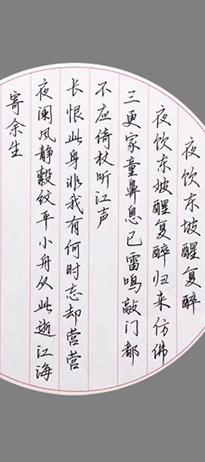 夜饮东坡醒复醉
夜饮东坡醒复醉归来仿佛
三更家童鼻息已雷鸣敲门都
不应倚杖听江声
长恨此身非我有何时忘却营营
夜阑风静縠纹平小舟从此逝江海
寄余生